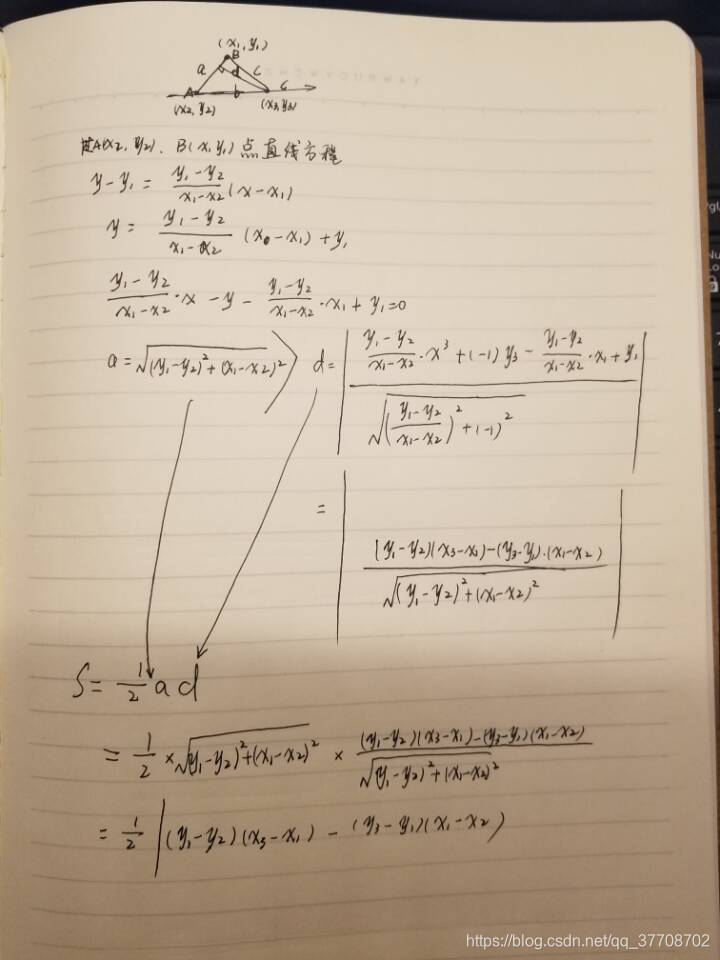 (x₁, y₁)
B
a d c
A b C
(x₂, y₂) (x₃, y₃)
A(x₂, y₂)、B(x₁y₁)点直线方程
y-y₁ = \frac{y₁-y₂}{x₁-x₂}(x-x₁)
y = \frac{y₁-y₂}{x₁-x₂}(x-x₁)+y₁
\frac{y₁-y₂}{x₁-x₂}·x -y- \frac{y₁-y₂}{x₁-x₂}·x₁+y₁=0
a = \sqrt{(y₁-y₂)²+(x₁-x₂)²} d = |\frac{\frac{y₁-y₂}{x₁-x₂}·x³+(-1)y₃-\frac{y₁-y₂}{x₁-x₂}·x₁+y₁}{\sqrt{(\frac{y₁-y₂}{x₁-x₂})²+(-1)²}}|
= |\frac{(y₁-y₂)(x₃-x₁)-(y₃-y₁)·(x₁-x₂)}{\sqrt{(y₁-y₂)²+(x₁-x₂)²}}|
S = \frac{1}{2} a d
= \frac{1}{2} × \sqrt{(y₁-y₂)²+(x₁-x₂)²} × \frac{(y₁-y₂)(x₃-x₁)-(y₃-y₁)(x₁-x₂)}{\sqrt{(y₁-y₂)²+(x₁-x₂)²}}
= \frac{1}{2} |(y₁-y₂)(x₃-x₁) - (y₃-y₁)(x₁-x₂)
https://blog.csdn.net/qq_37708702